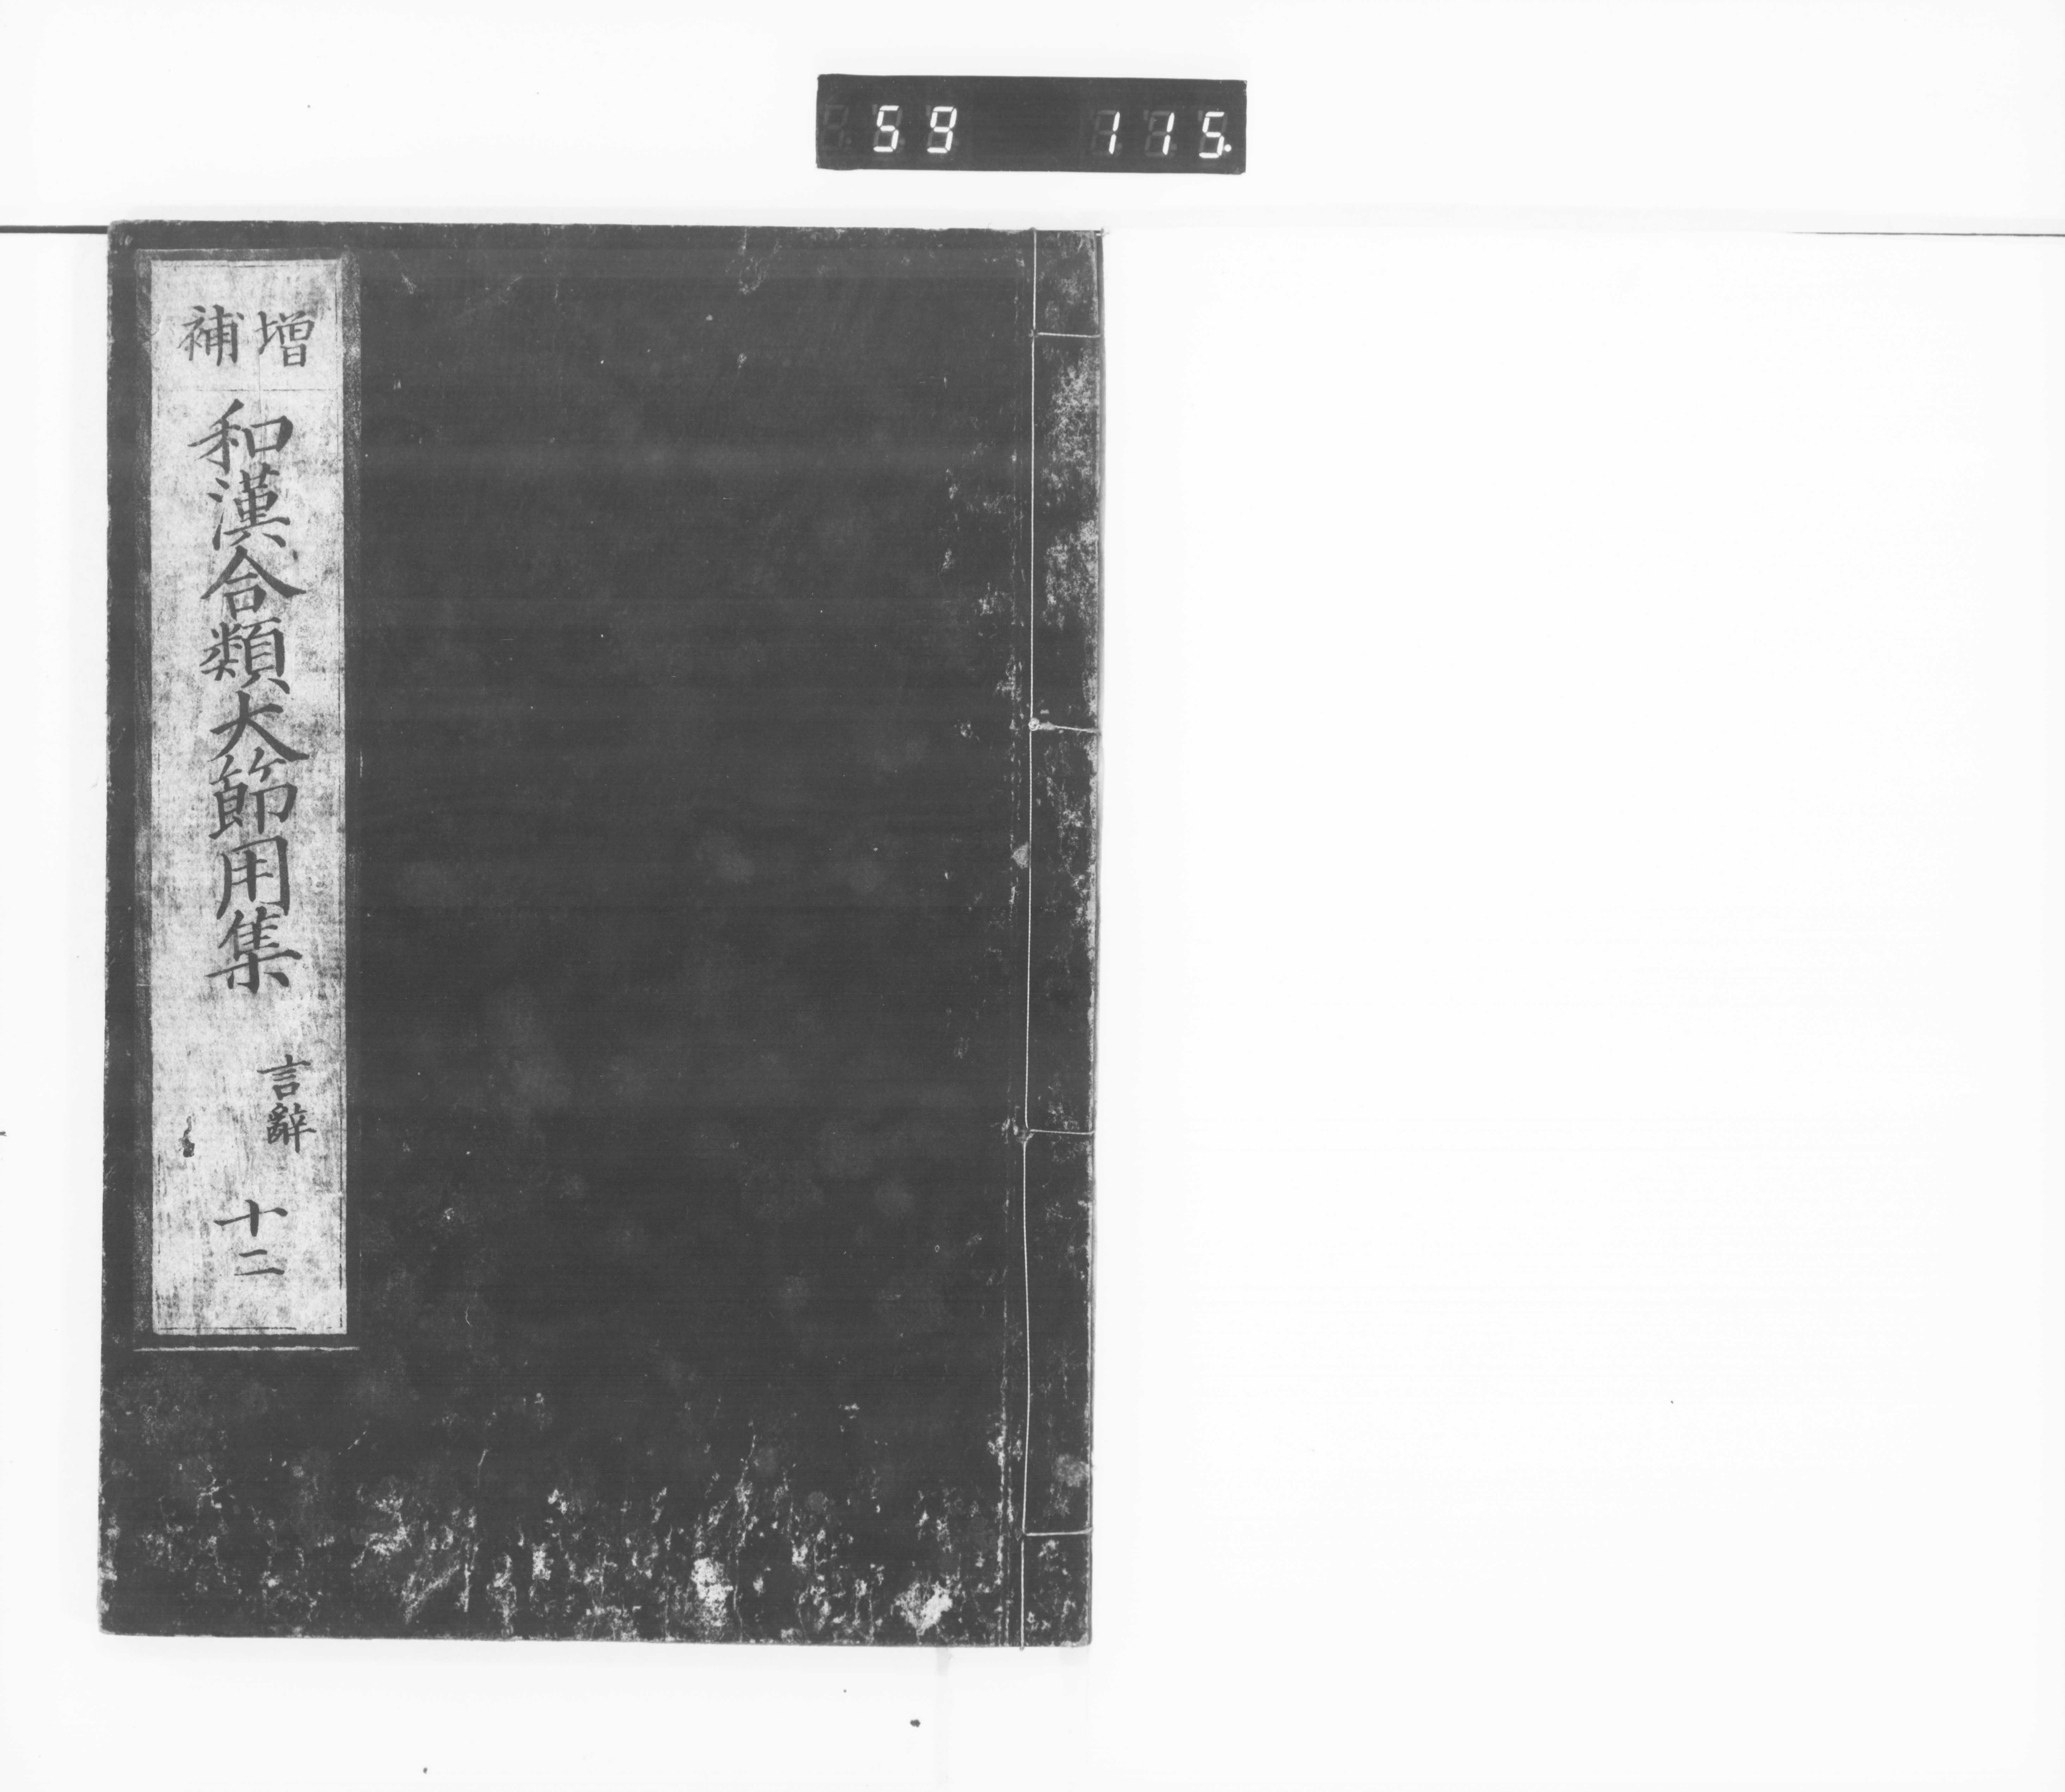 59 115.
増補
和漢合類大節用集
言辭
十二